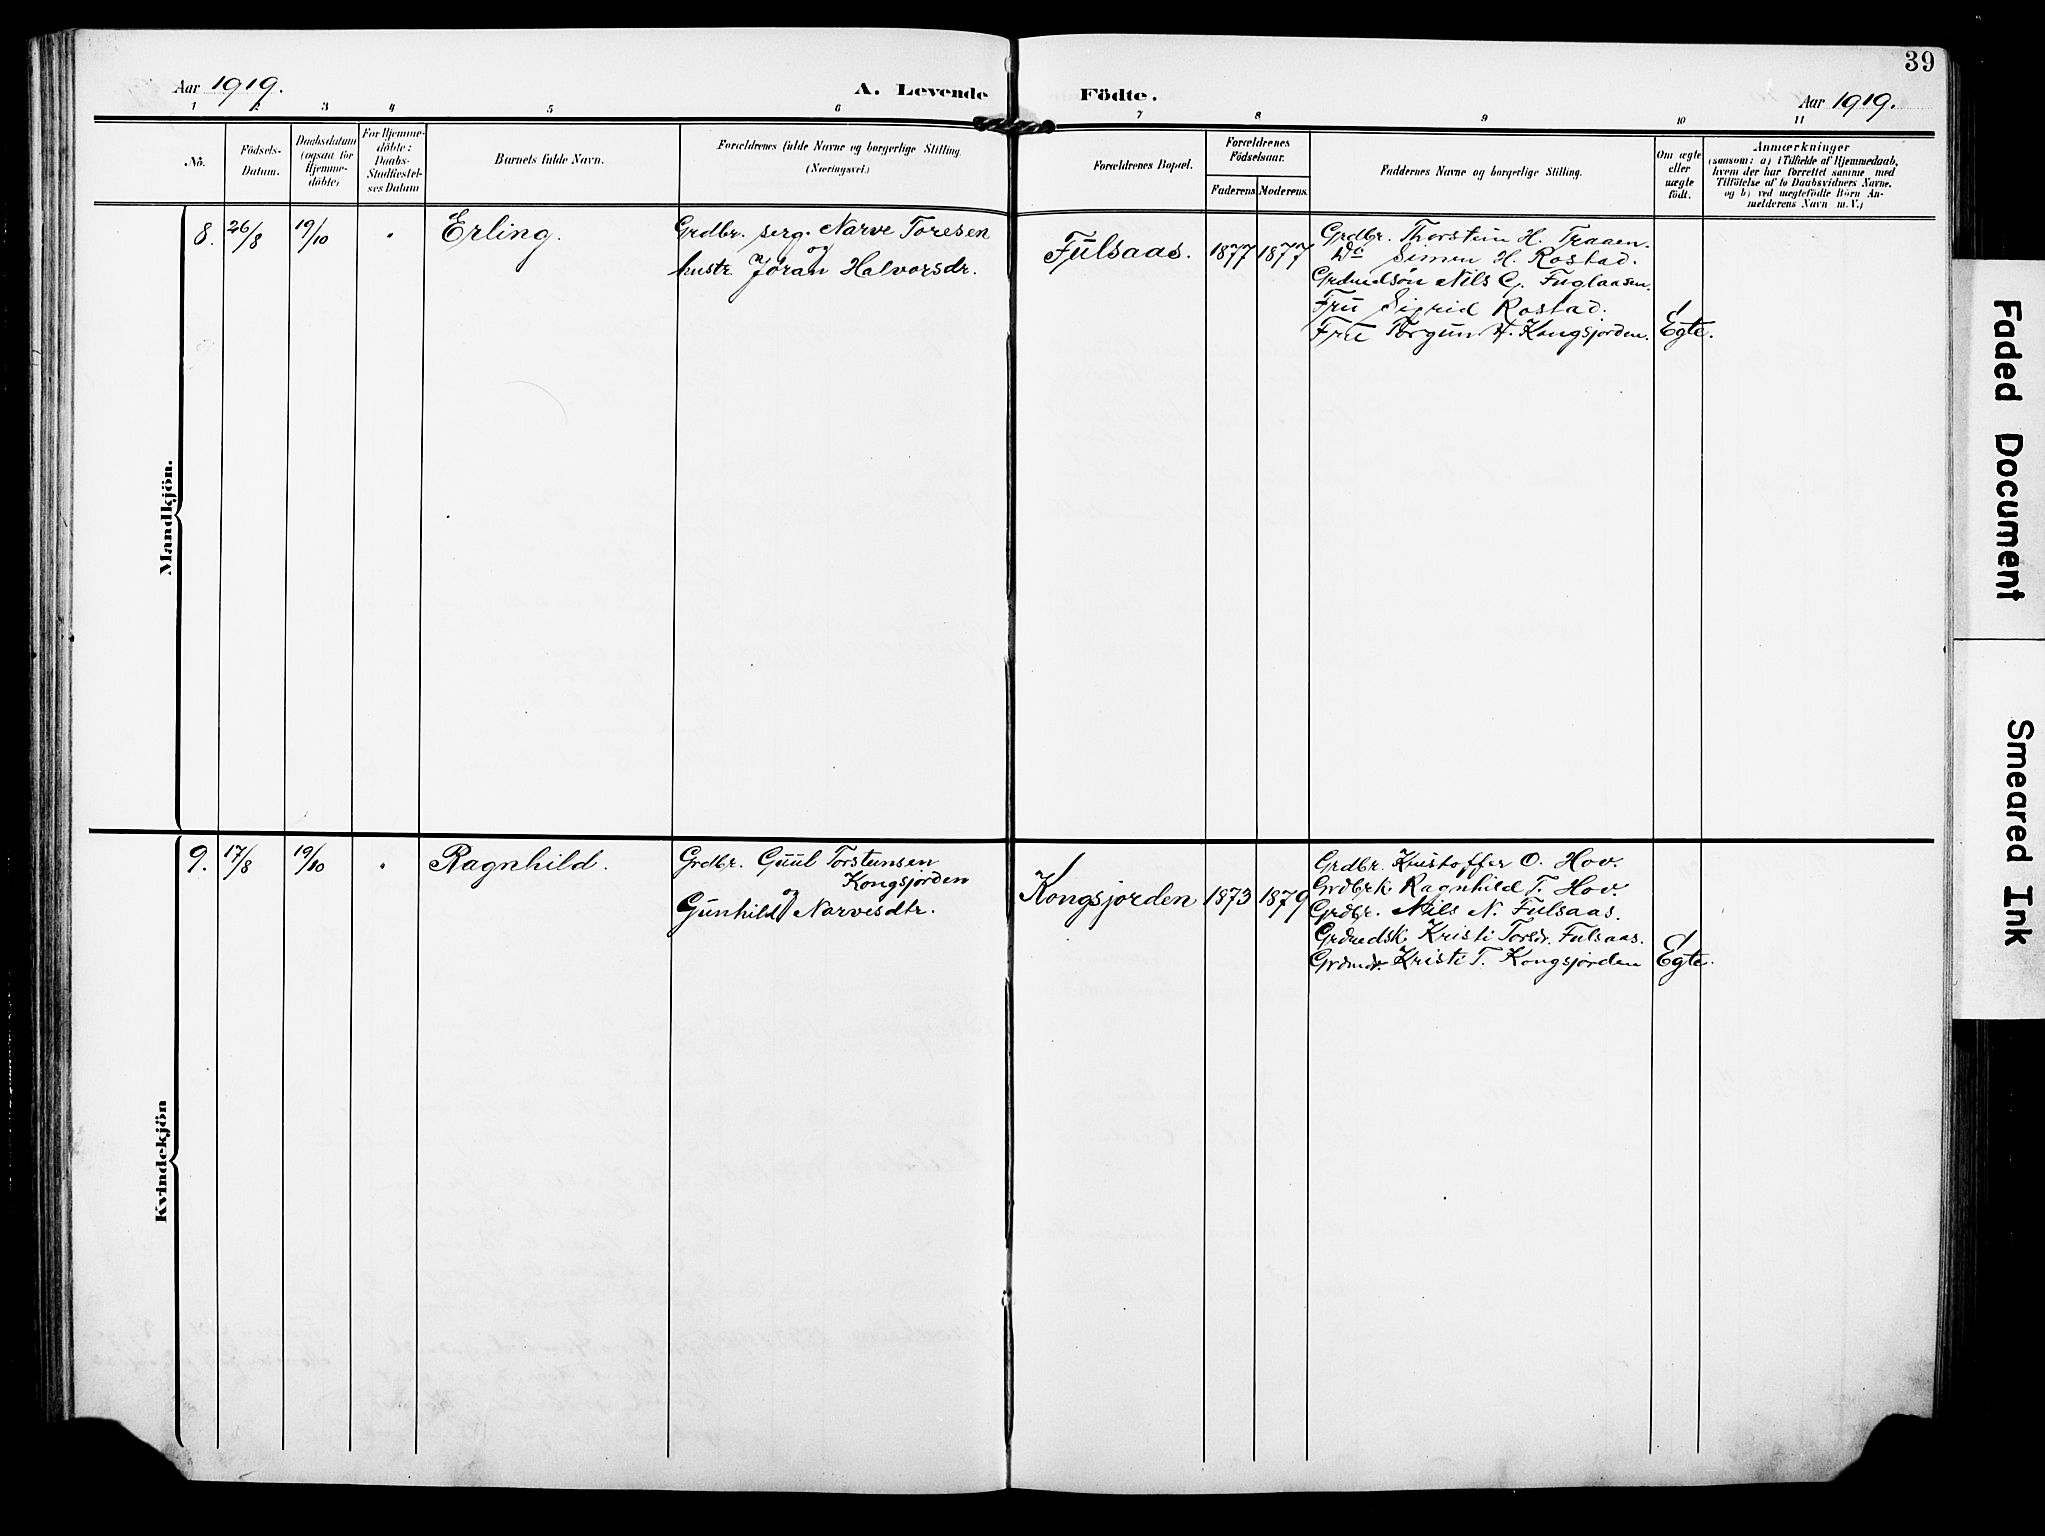 39
Aar 1919.
A. Levende Födte.
Aar 1919.
1 2 3 4 5 6 7 8 9 10 11
No.
Födsels-
Datum.
Daabsdatum
(ogsaa for
Hjemme-
döbte)
For Hjemme-
döbte:
Daabs-
Stadfæstel-
ses Datum
Barnets fulde Navn.
Forældrenes fulde Navne og borgerlige Stilling.
(Næringsvei.)
Forældrenes Bopæl.
Forældrenes
Födselsaar.
Faderens. Moderens.
Faddernes Navne og borgerlige Stilling.
Om ægte
eller
uægte
födt.
Anmærkninger
(saasom: a) i Tilfælde af Hjemmedaab,
hvem der har forrettet samme med
Tilföielse af to Daabsvidners Navne,
og b) ved uægtefödte Börn An-
melderens Navn m. V.)
Mandkjön.
8. 26/8 19/10 " Erling.
Grdbr. serg. Narve Toresen
og
hustr. Jøran Halvorsdr.
Fulsaas. 1877 1877
Grdbr. Thorstein H. Traaen.
Do Simen H. Rostad.
Grdmdsøn Nils G. Fuglaasen.
Fru Sigrid Rostad.
Fru Torgun H. Kongsjorden.
Egte.
Kvindekjön
9. 17/8 19/10 " Ragnhild.
Grdbr. Guul Torstensen
Kongsjorden
og
Gunhild Narvesdtr.
Kongsjorden 1873 1879
Grdbr. Kristoffer O. Hov.
Grdbrk. Ragnhild T. Hov
Grdbr. Nils N. Fulsaas.
Kristi Torsdr. Fulsaas.
Grdmdr. Kristi T. Kongsjorden
Egte.
Faded Document
Smeared Ink